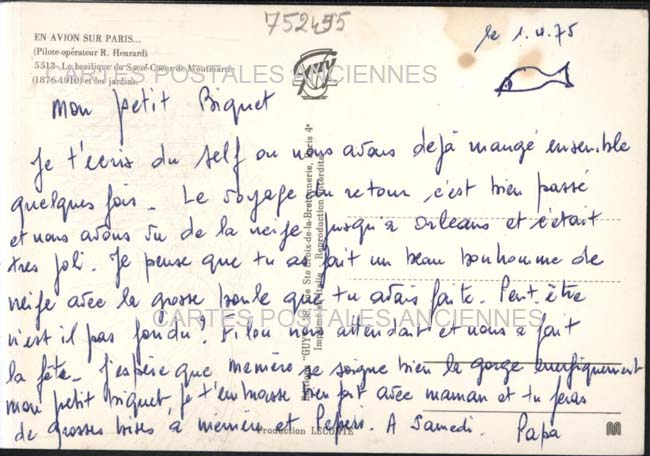 752495
EN AVION SUR PARIS...
(Pilote-opérateur R. Henrard)
5513 - La basilique du Sacré-Coeur de Montmartre
(1876-1910) et les jardins.
le 1.4.75
CARTES POSTALES ANCIENNES
Mon petit Biquet
Je t'écris du self ou nous avons dejà mangé ensemble
quelques fois - Le voyage du retour c'est bien passé
et nous avons vu de la neige jusqu'à Orleans et c'était
tres joli. Je pense que tu as fait un beau bonhomme de
neige avec la grosse boule que tu avais faite. Peut être
n'est il pas fondu? Filou nous attendait et nous a fait
la fête - J'espère que memère se soigne bien la gorge energiquement
mon petit biquet je t'embrasse bien fort avec maman et tu feras
de grosses bises à mémère et Pepère. A Samedi. Papa
CARTES POSTALES ANCIENNES
Editions "GUY" Ste Croix-de-la-Bretonnerie, Paris 4e
Reproduction interdite
Production LECONTE